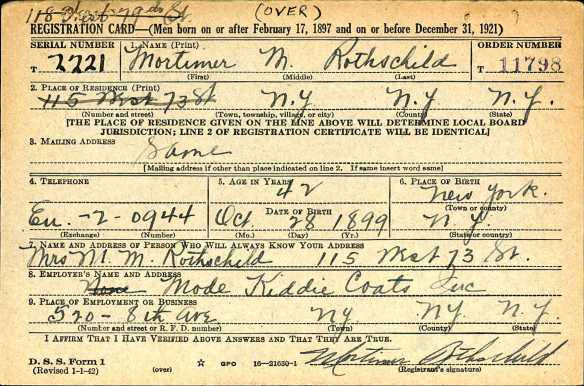 118 West 79th St. (OVER)
REGISTRATION CARD—(Men born on or after February 17, 1897 and on or before December 31, 1921)
SERIAL NUMBER 1. NAME (Print) ORDER NUMBER
T 2221 Mortimer M. Rothschild T 11798
(First) (Middle) (Last)
2. PLACE OF RESIDENCE (Print)
115 West 73 St N.Y N.Y N.Y.
(Number and street) (Town, township, village, or city) (County) (State)
[THE PLACE OF RESIDENCE GIVEN ON THE LINE ABOVE WILL DETERMINE LOCAL BOARD
JURISDICTION; LINE 2 OF REGISTRATION CERTIFICATE WILL BE IDENTICAL]
3. MAILING ADDRESS
Same
[Mailing address if other than place indicated on line 2. If same insert word same]
4. TELEPHONE 5. AGE IN YEARS 6. PLACE OF BIRTH
42 New York.
DATE OF BIRTH (Town or county)
En. -2-0944 Oct 28 1899 N Y
(Exchange) (Number) (Mo.) (Day) (Yr.) (State or country)
7. NAME AND ADDRESS OF PERSON WHO WILL ALWAYS KNOW YOUR ADDRESS
Mrs M. M. Rothschild 115 West 73 St.
8. EMPLOYER'S NAME AND ADDRESS
Mode Kiddie Coats Inc
9. PLACE OF EMPLOYMENT OR BUSINESS
520 - 8th Ave NY NY. N.Y.
(Number and street or R. F. D. number) (Town) (County) (State)
I AFFIRM THAT I HAVE VERIFIED ABOVE ANSWERS AND THAT THEY ARE TRUE.
D. S. S. Form 1 Mortimer Rothschild
(Revised 1-1-42) (over) ☆ GPO 16—21630-1 (Registrant's signature)